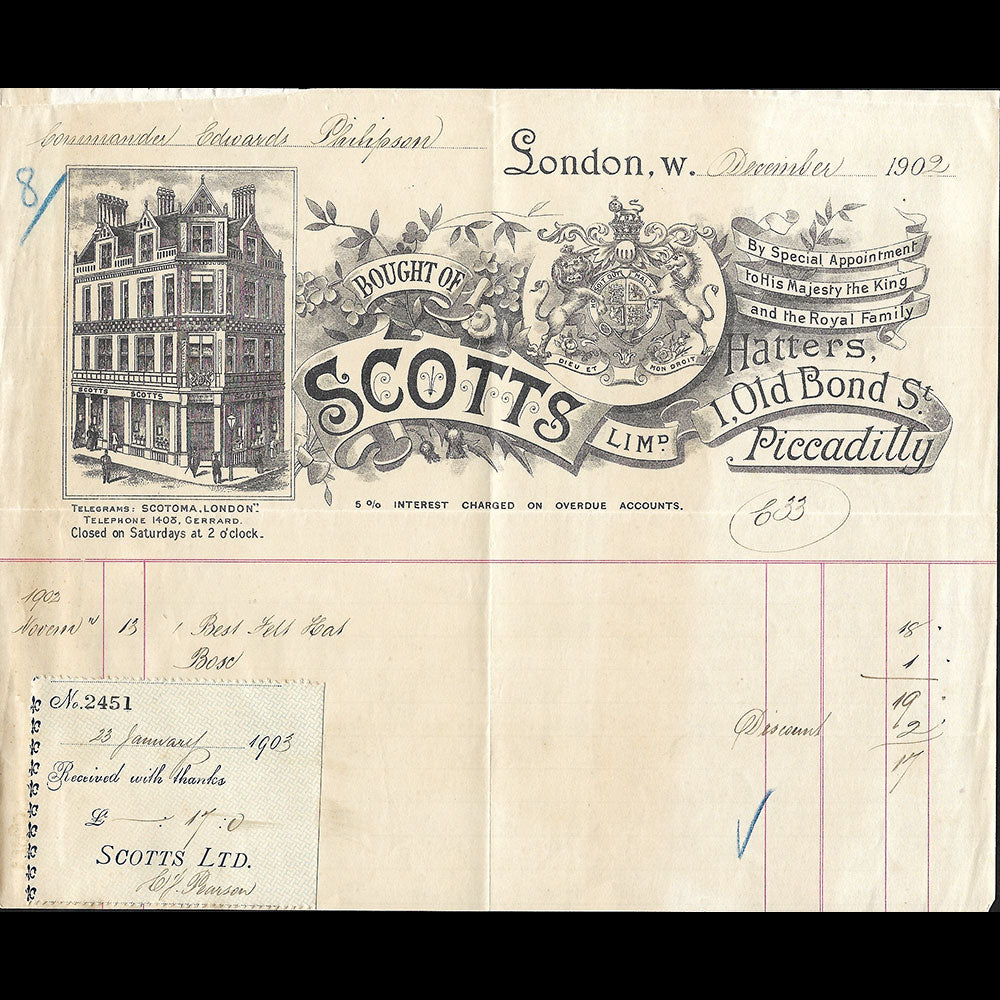 Commander Edwards Philipson
London, W. December 1902
8/
BOUGHT OF
SCOTTS
LIMD.
DIEU ET MON DROIT
By Special Appointment
to His Majesty the King
and the Royal Family
Hatters,
1, Old Bond St.
Piccadilly
SCOTTS SCOTTS SCOTTS
TELEGRAMS: SCOTOMA, LONDON".
TELEPHONE 1408, GERRARD.
Closed on Saturdays at 2 o'clock.
5 % INTEREST CHARGED ON OVERDUE ACCOUNTS.
633
1902
Novem" 13 1 Best Felt Hat 18 .
Box 1 .
19 .
Discount 2 .
17
No. 2451
23 January 1903
Received with thanks
£ — : 17 : 0
SCOTTS LTD.
Pearson